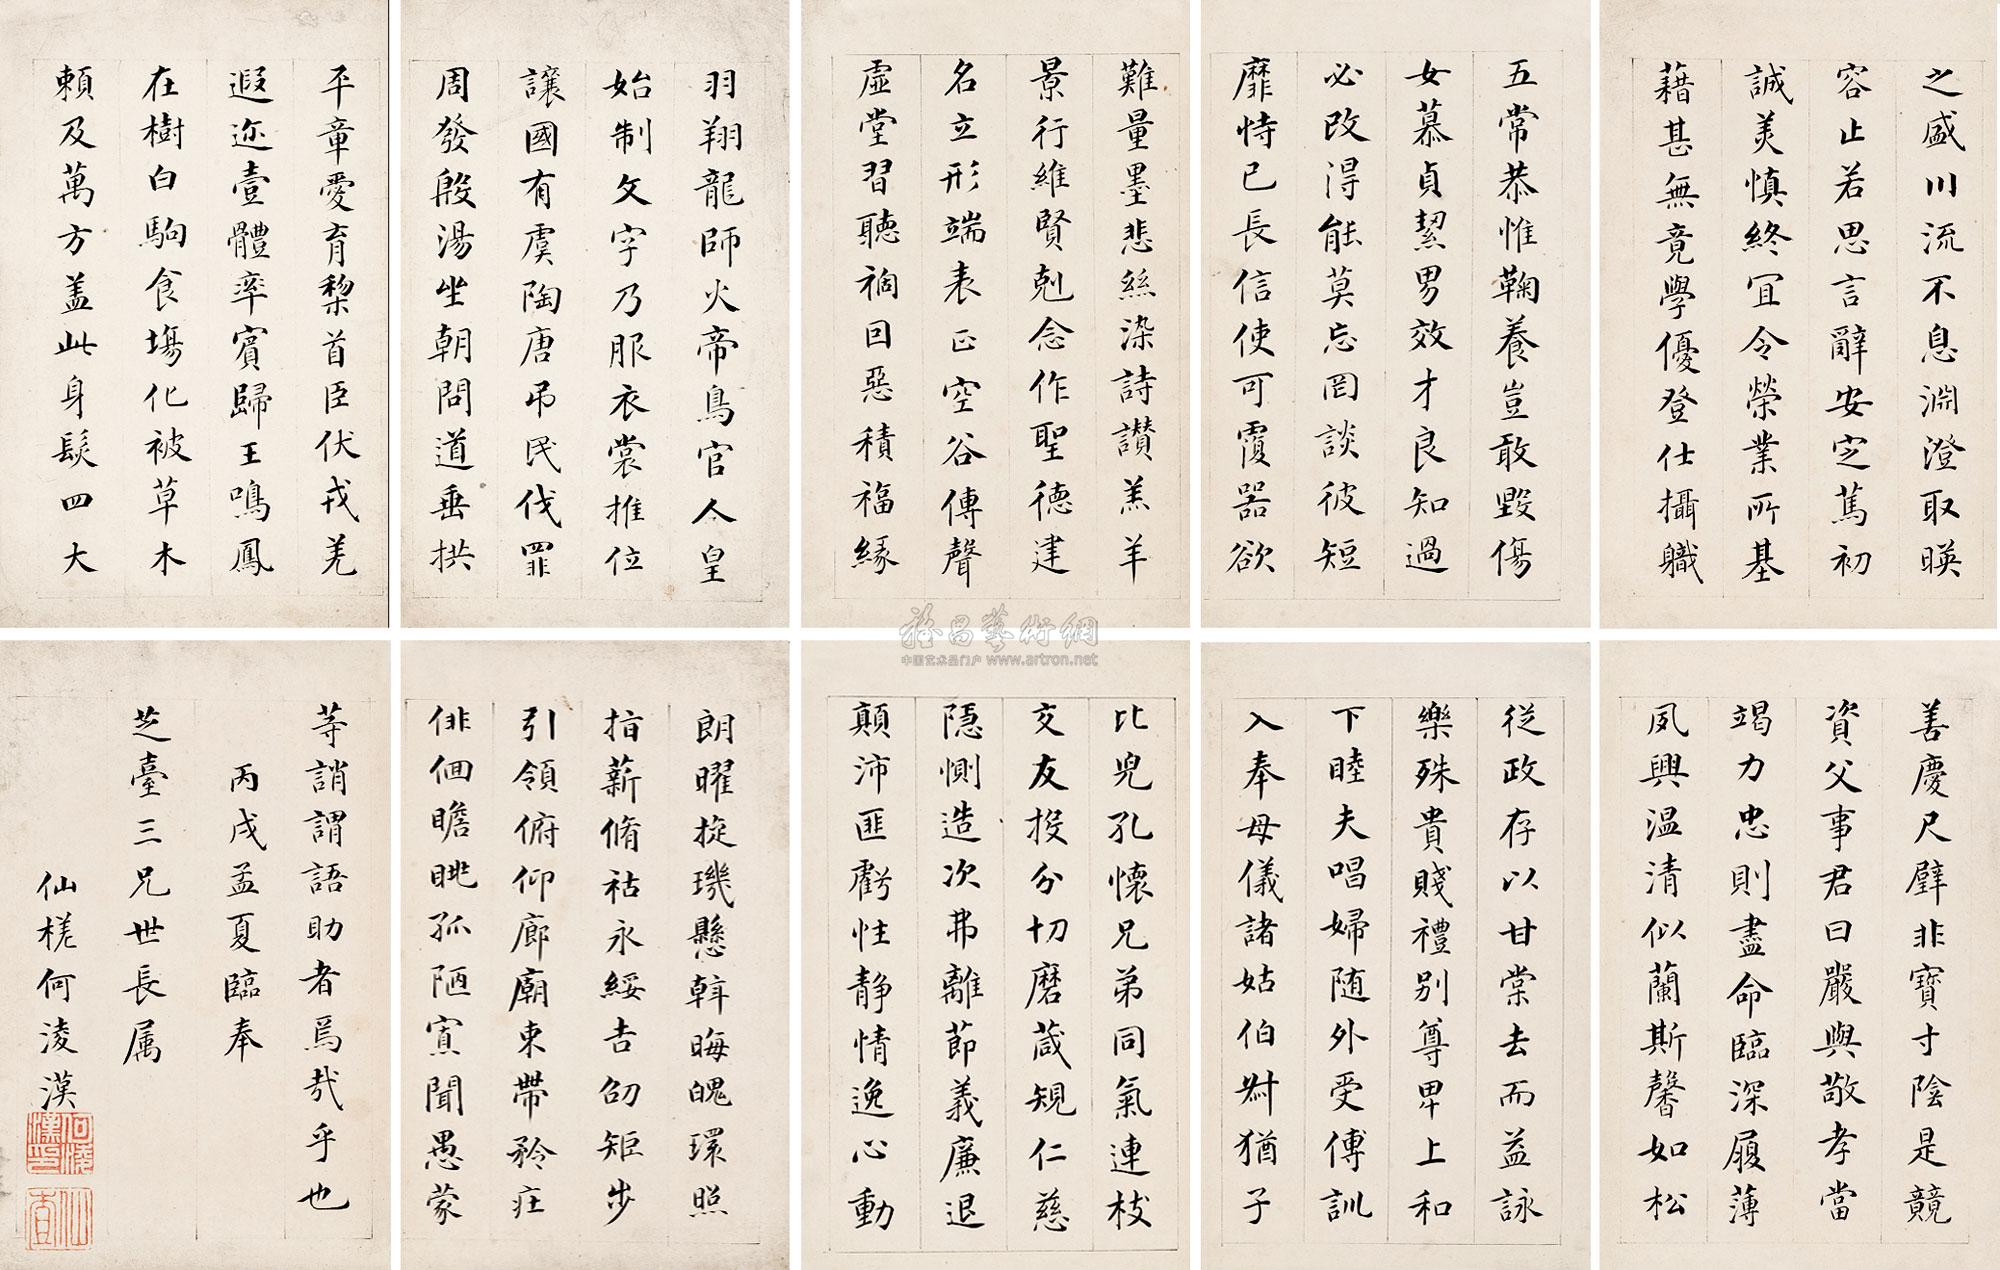 之盛川流不息淵澄取暎
容止若思言辭安定篤初
誠美慎終宜令榮業所基
藉甚無竟學優登仕攝職
五常恭惟鞠養豈敢毀傷
女慕貞絜男效才良知過
必改得能莫忘罔談彼短
靡恃己長信使可覆器欲
難量墨悲絲染詩讚羔羊
景行維賢剋念作聖德建
名立形端表正空谷傳聲
虛堂習聽禍因惡積福緣
羽翔龍師火帝鳥官人皇
始制文字乃服衣裳推位
讓國有虞陶唐弔民伐罪
周發殷湯坐朝問道垂拱
平章愛育黎首臣伏戎羌
遐迩壹體率賓歸王鳴鳳
在樹白駒食場化被草木
賴及萬方盖此身髮四大
善慶尺璧非寶寸陰是競
資父事君曰嚴與敬孝當
竭力忠則盡命臨深履薄
夙興温清似蘭斯馨如松
從政存以甘棠去而益詠
樂殊貴賤禮別尊卑上和
下睦夫唱婦随外受傅訓
入奉母儀諸姑伯叔猶子
比兒孔懷兄弟同氣連枝
交友投分切磨葴規仁慈
隱惻造次弗離節義廉退
顛沛匪虧性静情逸心動
朗曜旋璣懸斡晦魄環照
指薪脩祜永綏吉劭矩步
引領俯仰廊廟束帶矜莊
俳佪瞻眺孤陋寡聞愚蒙
等誚謂語助者焉哉乎也
丙戌孟夏臨奉
芝臺三兄世長属
仙槎何淩漢
何淩漢印
仙查
雅昌藝術網
中国艺术品门户 www.artron.net